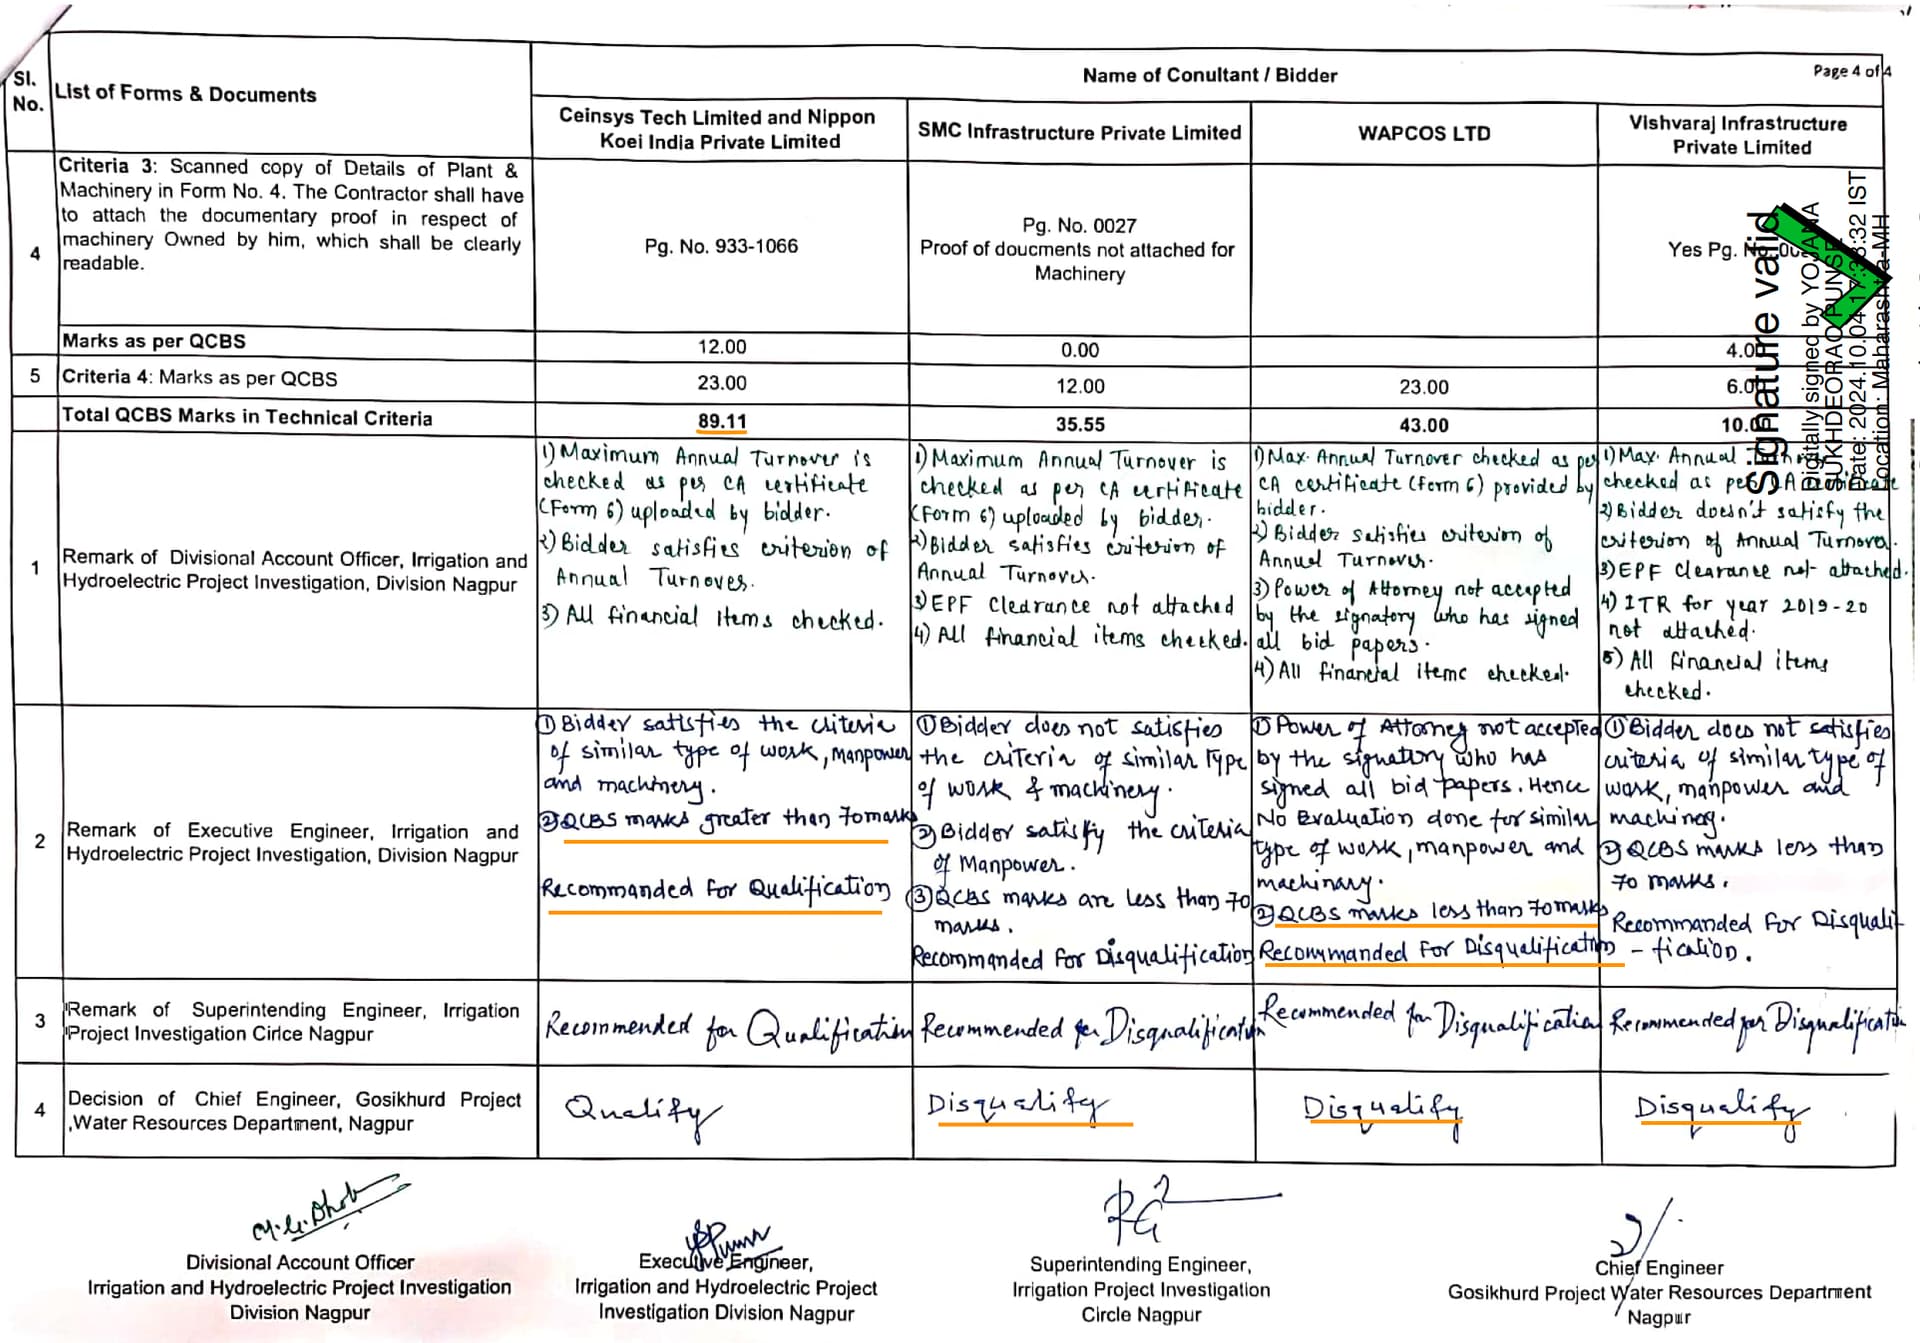 Page 4 of 4
Sl. No.
List of Forms & Documents
Name of Conultant / Bidder
Ceinsys Tech Limited and Nippon
Koei India Private Limited
SMC Infrastructure Private Limited
WAPCOS LTD
Vishvaraj Infrastructure
Private Limited
4
Criteria 3: Scanned copy of Details of Plant &
Machinery in Form No. 4. The Contractor shall have
to attach the documentary proof in respect of
machinery Owned by him, which shall be clearly
readable.
Pg. No. 933-1066
Pg. No. 0027
Proof of doucments not attached for
Machinery
Yes Pg.
Marks as per QCBS
12.00
0.00
4.00
5
Criteria 4: Marks as per QCBS
23.00
12.00
23.00
6.00
Total QCBS Marks in Technical Criteria
89.11
35.55
43.00
10.00
Signature valid
Digitally signed by YOJANA
SUKHDEORAO PUNSE
Date: 2024.10.04 17:33:32 IST
Location: Maharashtra-MH
1
Remark of Divisional Account Officer, Irrigation and
Hydroelectric Project Investigation, Division Nagpur
1) Maximum Annual Turnover is
checked as per CA certificate
(Form 6) uploaded by bidder.
2) Bidder satisfies criterion of
Annual Turnover.
3) All financial items checked.
1) Maximum Annual Turnover is
checked as per CA certificate
(Form 6) uploaded by bidder.
2) Bidder satisfies criterion of
Annual Turnover.
3) EPF Clearance not attached
4) All financial items checked.
1) Max. Annual Turnover checked as per
CA certificate (Form 6) provided by
bidder.
2) Bidder satisfies criterion of
Annual Turnover.
3) Power of Attorney not accepted
by the signatory who has signed
all bid papers.
4) All financial items checked.
1) Max. Annual
checked as per CA certificate
2) Bidder doesn't satisfy the
criterion of Annual Turnover.
3) EPF Clearance not attached.
4) ITR for year 2019-20
not attached.
5) All financial items
checked.
2
Remark of Executive Engineer, Irrigation and
Hydroelectric Project Investigation, Division Nagpur
① Bidder satisfies the criteria
of similar type of work, manpower
and machinery.
② QCBS marks greater than 70 marks
Recommanded for Qualification
① Bidder does not satisfies
the criteria of similar type
of work & machinery.
② Bidder satisfy the criteria
of Manpower.
③ QCBS marks are less than 70
marks.
Recommanded for Disqualification
① Power of Attorney not accepted
by the signatory who has
signed all bid papers. Hence
No Evaluation done for similar
type of work, manpower and
machinary.
② QCBS marks less than 70 marks
Recommanded for Disqualification
① Bidder does not satisfies
criteria of similar type of
work, manpower and
machinery.
② QCBS marks less than
70 marks.
Recommanded for Disquali-
- fication.
3
Remark of Superintending Engineer, Irrigation
Project Investigation Cirlce Nagpur
Recommended for Qualification
Recommended for Disqualification
Recommended for Disqualification
Recommended for Disqualification
4
Decision of Chief Engineer, Gosikhurd Project
,Water Resources Department, Nagpur
Qualify
Disqualify
Disqualify
Disqualify
Divisional Account Officer
Irrigation and Hydroelectric Project Investigation
Division Nagpur
Executive Engineer,
Irrigation and Hydroelectric Project
Investigation Division Nagpur
Superintending Engineer,
Irrigation Project Investigation
Circle Nagpur
Chief Engineer
Gosikhurd Project Water Resources Department
Nagpur